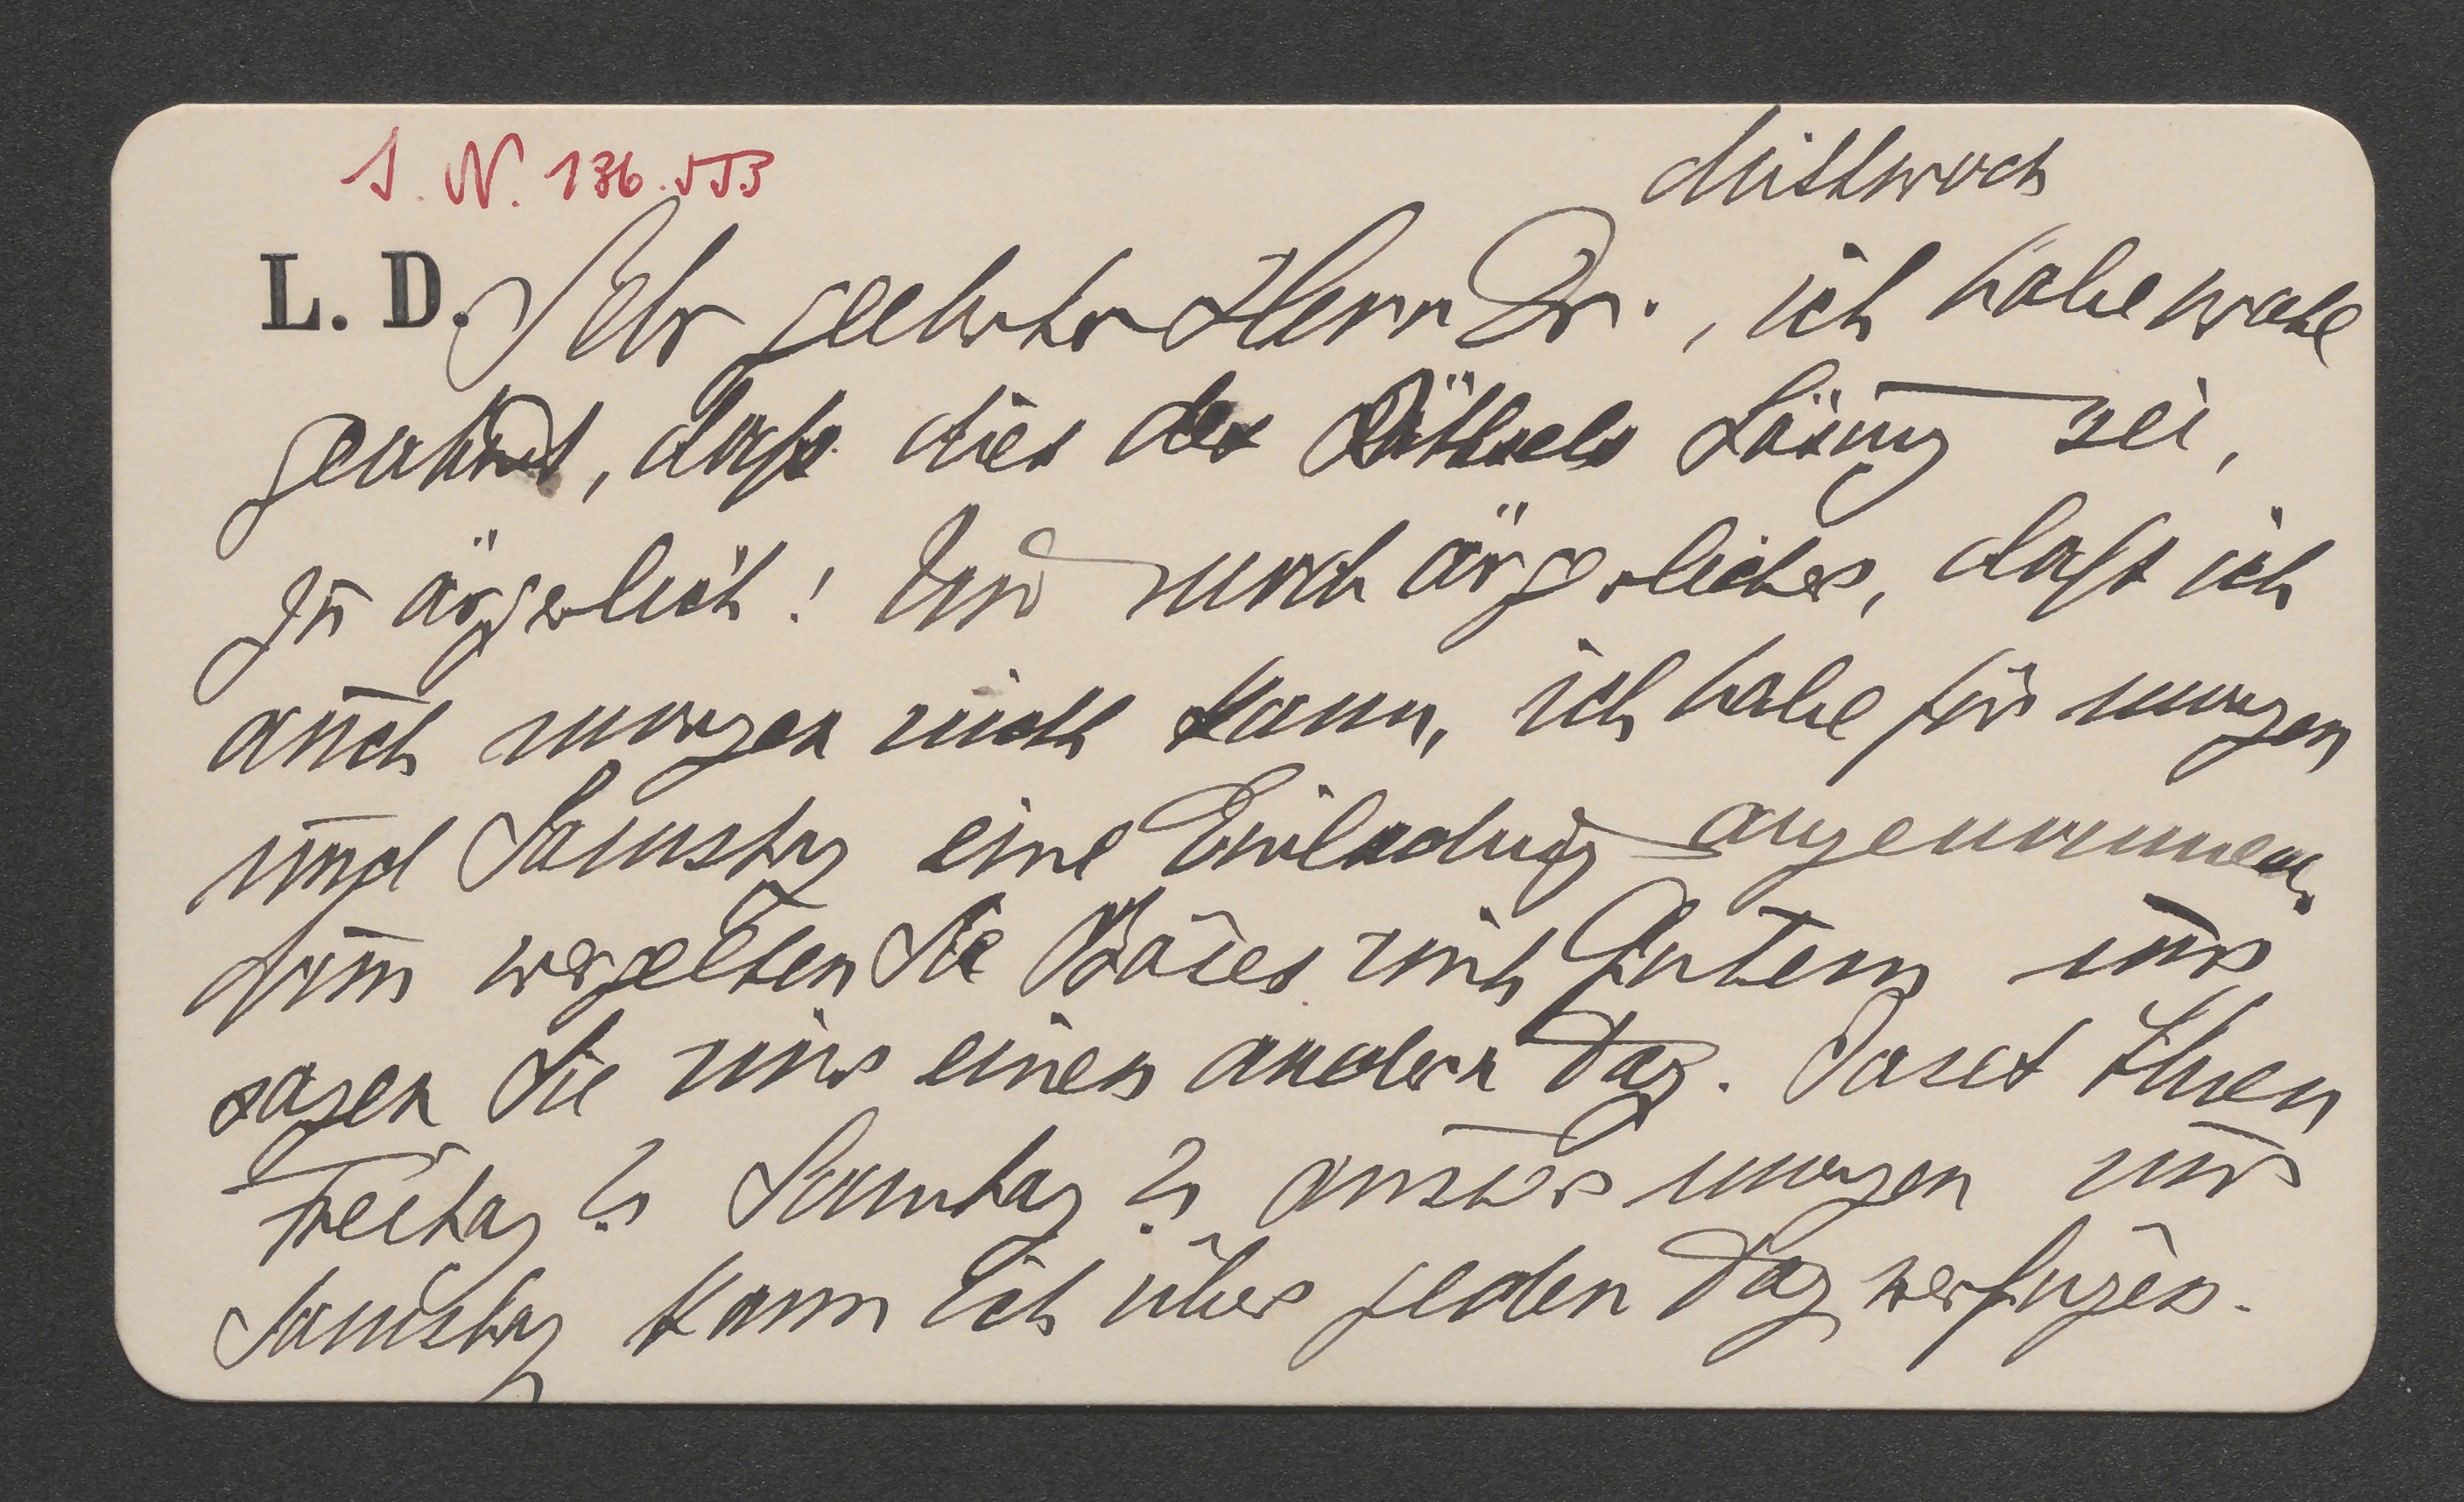 J. N. 136.553
Mittwoch
L. D. Sehr geehrter Herr Dr., ich habe wohl
geahnt, daß dies des Räthsels Lösung sei,
zu ärgerlich! Und noch ärgerlicher, daß ich
auch morgen nicht kann, ich habe für morgen
und Samstag eine Einladung angenommen.
Nun vergelten Sie Böses mit Gutem und
sagen Sie uns einen andern Tag. Passt Ihnen
Freitag? Sonntag? ausser morgen und
Samstag kann ich über jeden Tag verfügen.